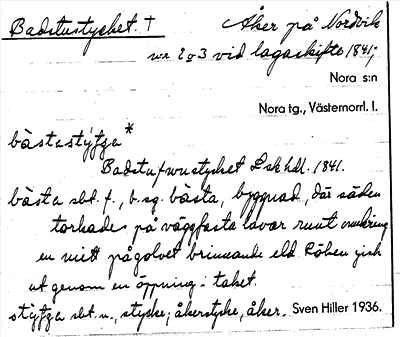 Badstustycket. †
Åker på Nordvik
nr 2 o 3 vid lagaskifte 1841;
Nora s:n
Nora tg., Västernorrl. l.
bàstastỳfga*
Badstufwustycket Lsk hdl. 1841.
bàsta sbt. f., b. sg. bàsta, byggnad, där säden
torkades på väggfasta lavar runt omkring
en mitt på golvet brinnande eld. Röken gick
ut genom en öppning i taket.
stỳfga sbt. n., stycke; åkerstycke, åker. Sven Hiller 1936.